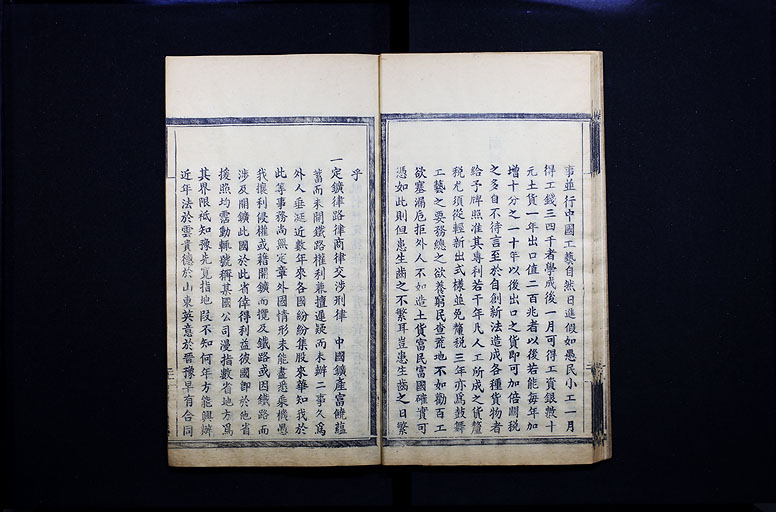 事並行中國工藝自然日進假如愚民小工一月
得工錢三四千者學成後一月可得工資銀數十
元土貨一年出口值二百兆者以後若能每年加
增十分之一十年以後出口之貨即可加倍關稅
之多自不待言至於自創新法造成各種貨物者
給予牌照准其專利若干年凡人工所成之貨釐
稅尤須從輕新出式樣並免釐稅三年亦爲鼓舞
工藝之要務總之欲養窮民查荒地不如勸百工
欲塞漏卮拒外人不如造土貨富民富國確實可
憑如此則但患生齒之不繁耳豈患生齒之日繁
乎
一定鑛律路律商律交涉刑律 中國鑛產富饒蘊
蓄而未開鐵路權利兼擅遲疑而未辦二事久爲
外人垂涎近數年來各國紛紛集股來華知我於
此等事務尚無定章外國情形未能盡悉乘機愚
我攘利侵權或藉開鑛而攬及鐵路或因鐵路而
涉及開鑛此國於此省倖得利益彼國卽於他省
援照均霑動輒號稱某國公司漫指數省地方爲
其界限祗知豫先覓指地段不知何年方能興辦
近年法於雲貴德於山東英意於晉豫早有合同